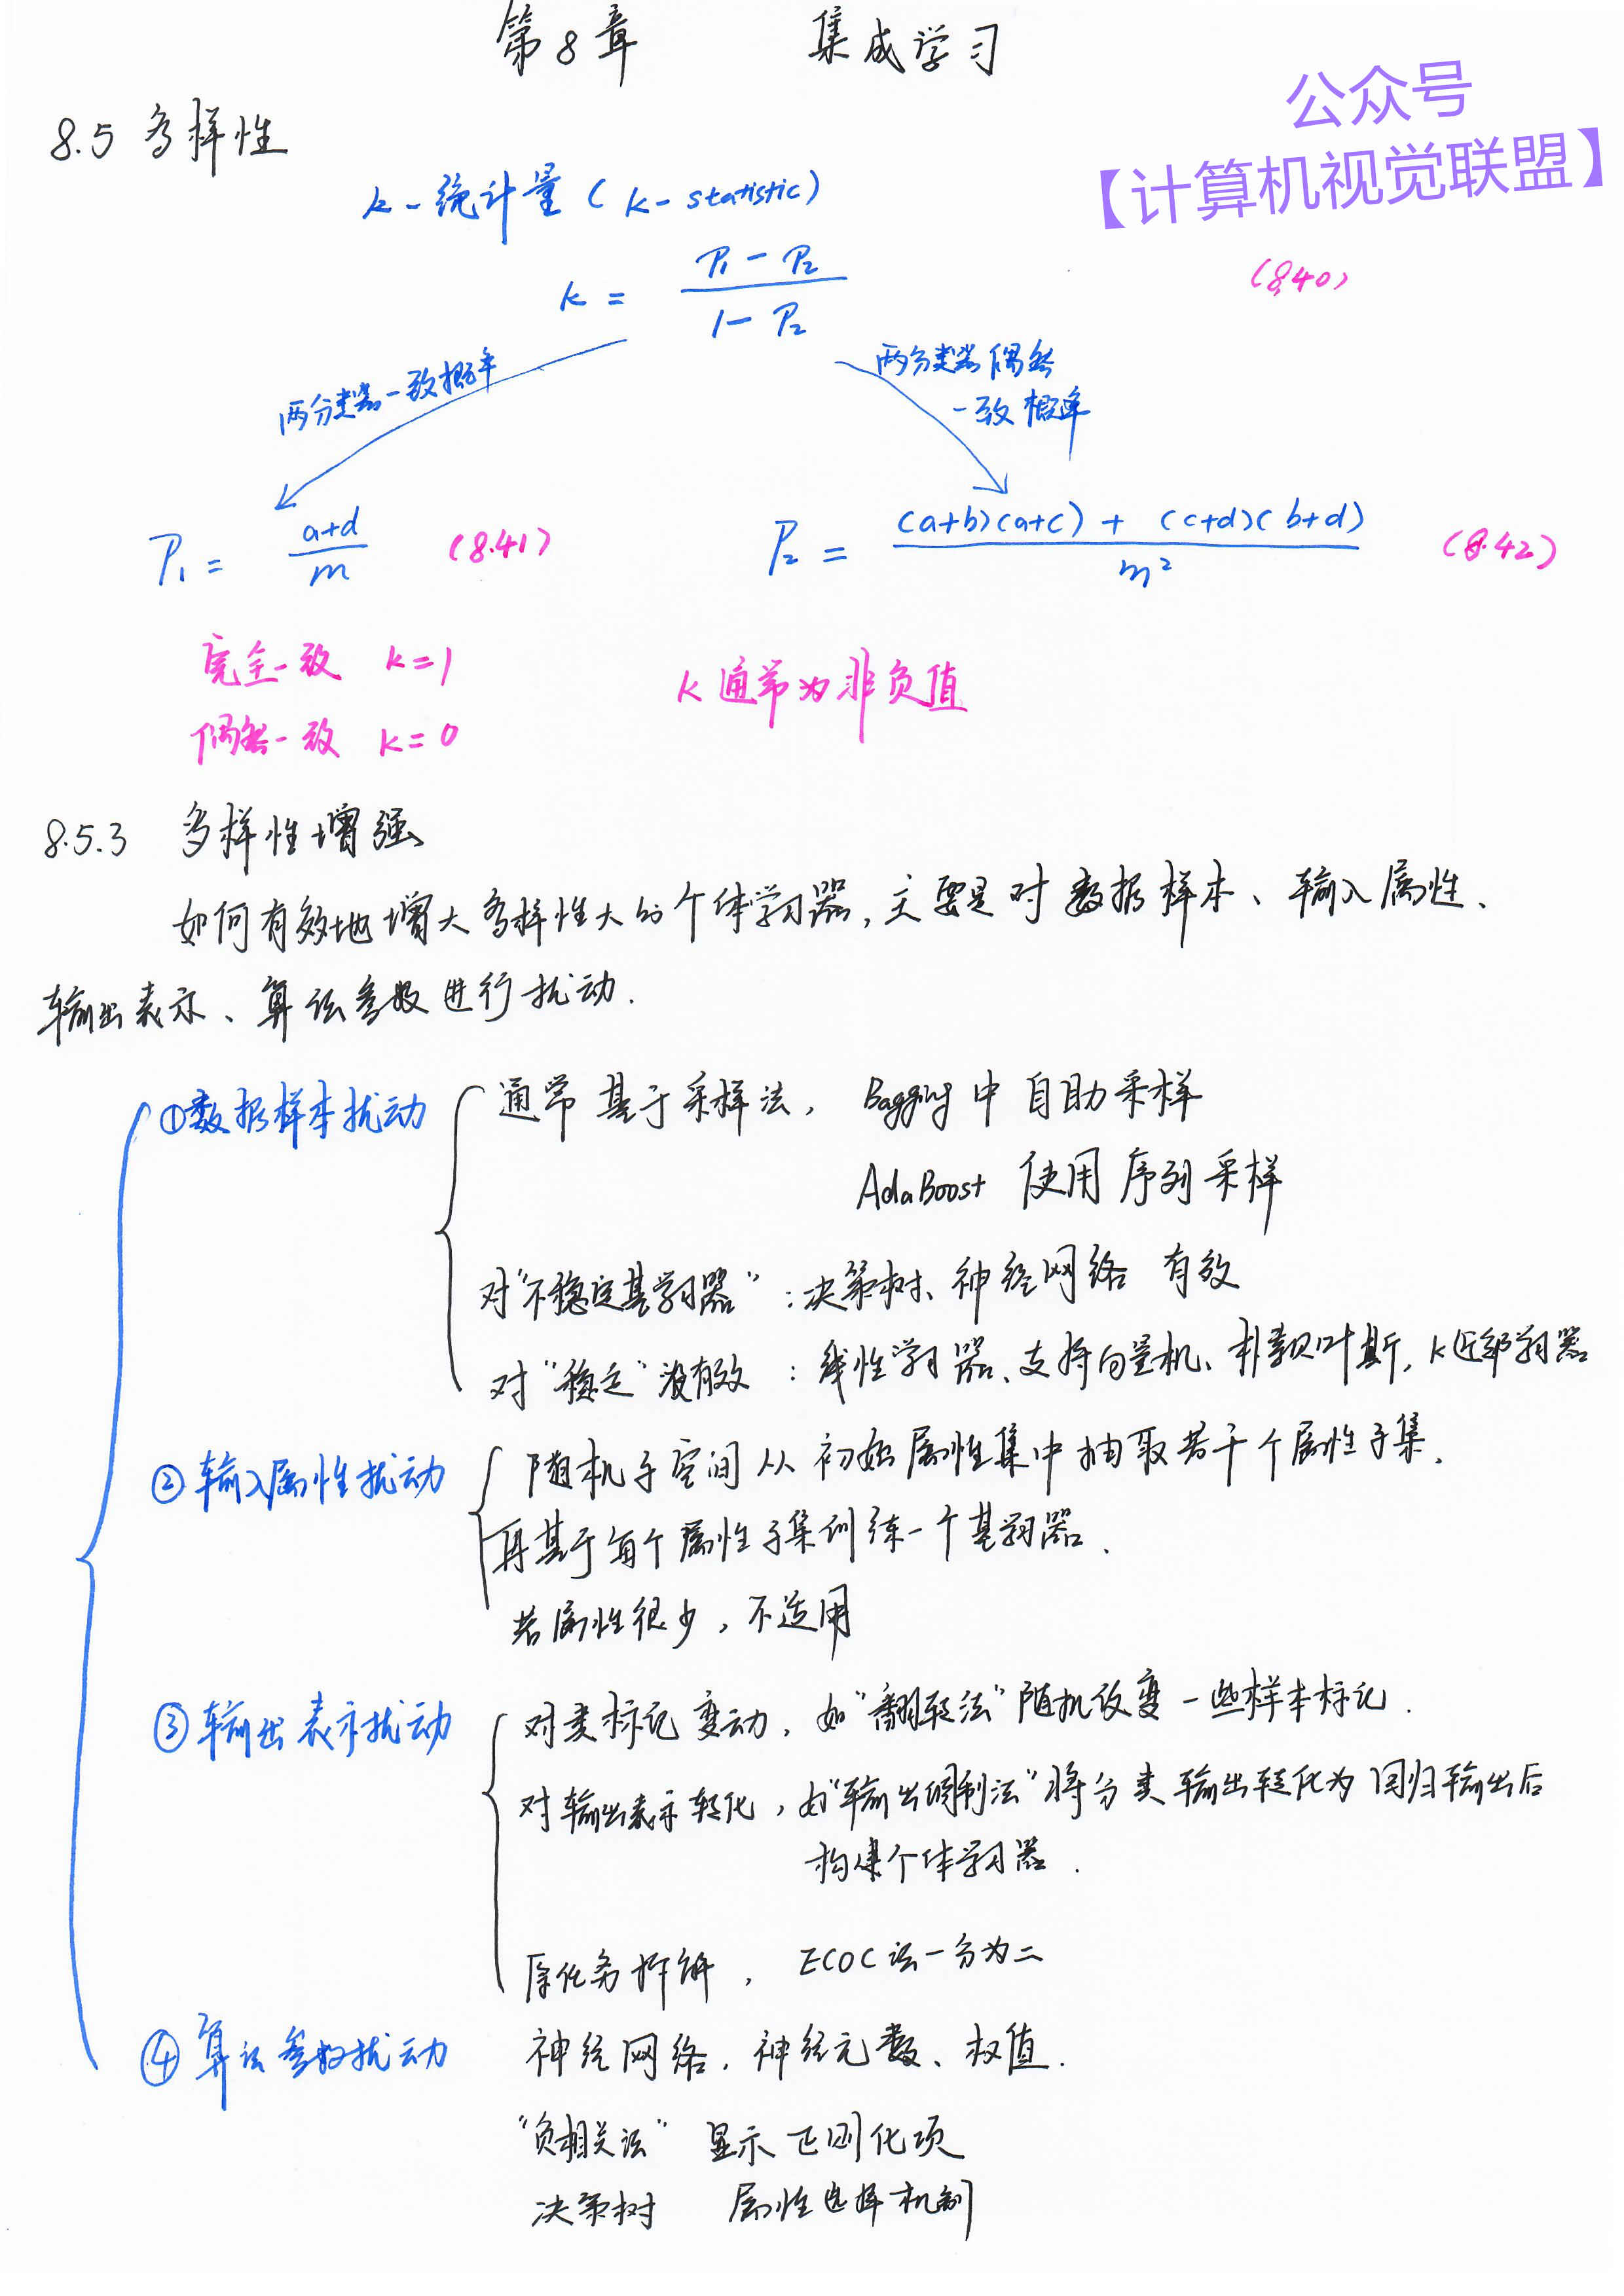 第8章 集成学习
公众号
【计算机视觉联盟】
8.5 多样性
k-统计量 (k-statistic)
k = (P₁ - P₂) / (1 - P₂) (8.40)
两分类器一致概率
两分类器偶然
一致概率
P₁ = (a+d) / m (8.41)
P₂ = ((a+b)(a+c) + (c+d)(b+d)) / m² (8.42)
完全一致 k=1
k通常为非负值
偶然一致 k=0
8.5.3 多样性增强
如何有效地增大多样性大的个体学习器,主要是对数据样本、输入属性、
输出表示、算法参数进行扰动.
①数据样本扰动
通常基于采样法, Bagging中自助采样
AdaBoost 使用序列采样
对"不稳定基学习器":决策树、神经网络 有效
对"稳定"没有效:线性学习器、支持向量机、朴素贝叶斯,k近邻学习器
②输入属性扰动
随机子空间从初始属性集中抽取若干个属性子集,
再基于每个属性子集训练一个基学习器、
若属性很少,不适用
③输出表示扰动
对类标记变动,如"翻转法"随机改变一些样本标记.
对输出表示转化,如"输出调制法"将分类输出转化为回归输出后
构建个体学习器.
原任务拆解, ECOC法一分为二
④算法参数扰动
神经网络,神经元数、权值.
"负相关法" 显示正则化项
决策树 属性选择机制